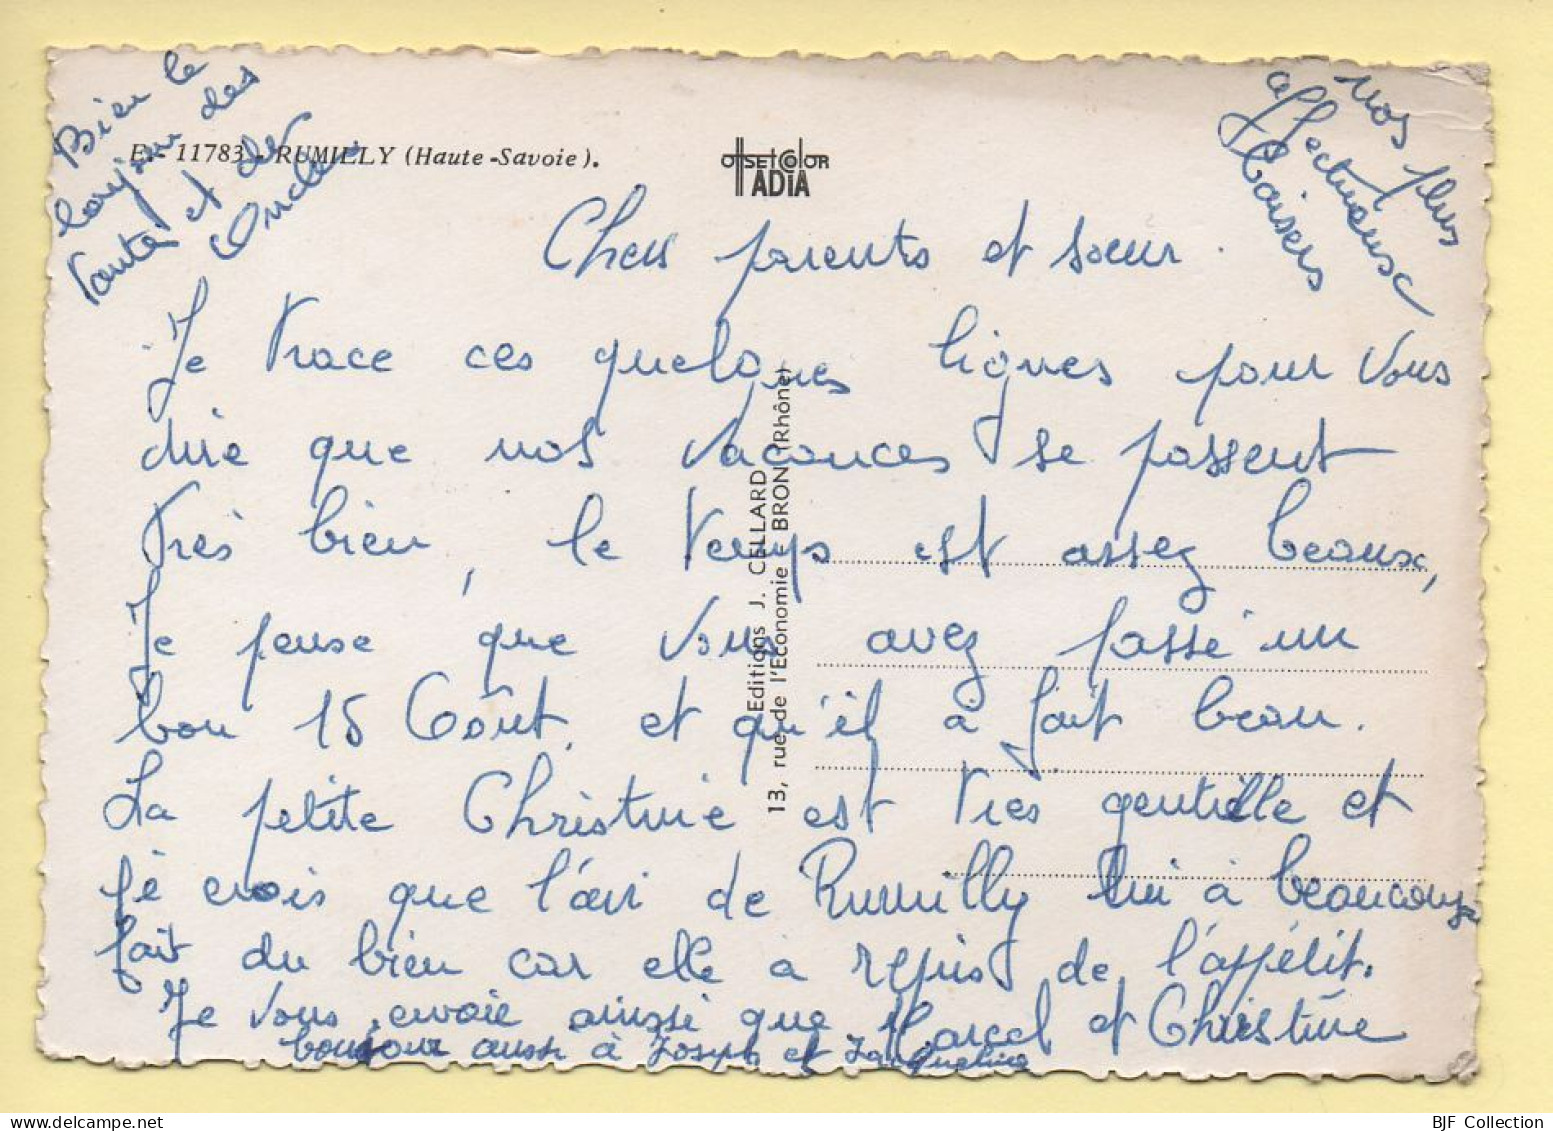 Bien le
bonjour des
Tantes et des
Oncles
E. - 11783 - RUMILLY (Haute-Savoie).
OFFSET COLOR
ADIA
Nos plus
affectueuse
baisers
Chers parents et sœur.
Je trace ces quelques lignes pour vous
dire que nos vacances se passent
très bien, le temps est assez beaux,
Je pense que vous avez passé un
bon 15 Août, et qu'il à fait beau.
La petite Christine est très gentille et
je crois que l'air de Rumilly lui à beaucoup
fait du bien car elle a repris de l'appétit.
Je vous envoie ainsi que Marcel et Christine
bonjour aussi à Joseph et Jacqueline
Editions J. CELLARD
13, rue de l'Economie - BRON (Rhône)
BJF Collection